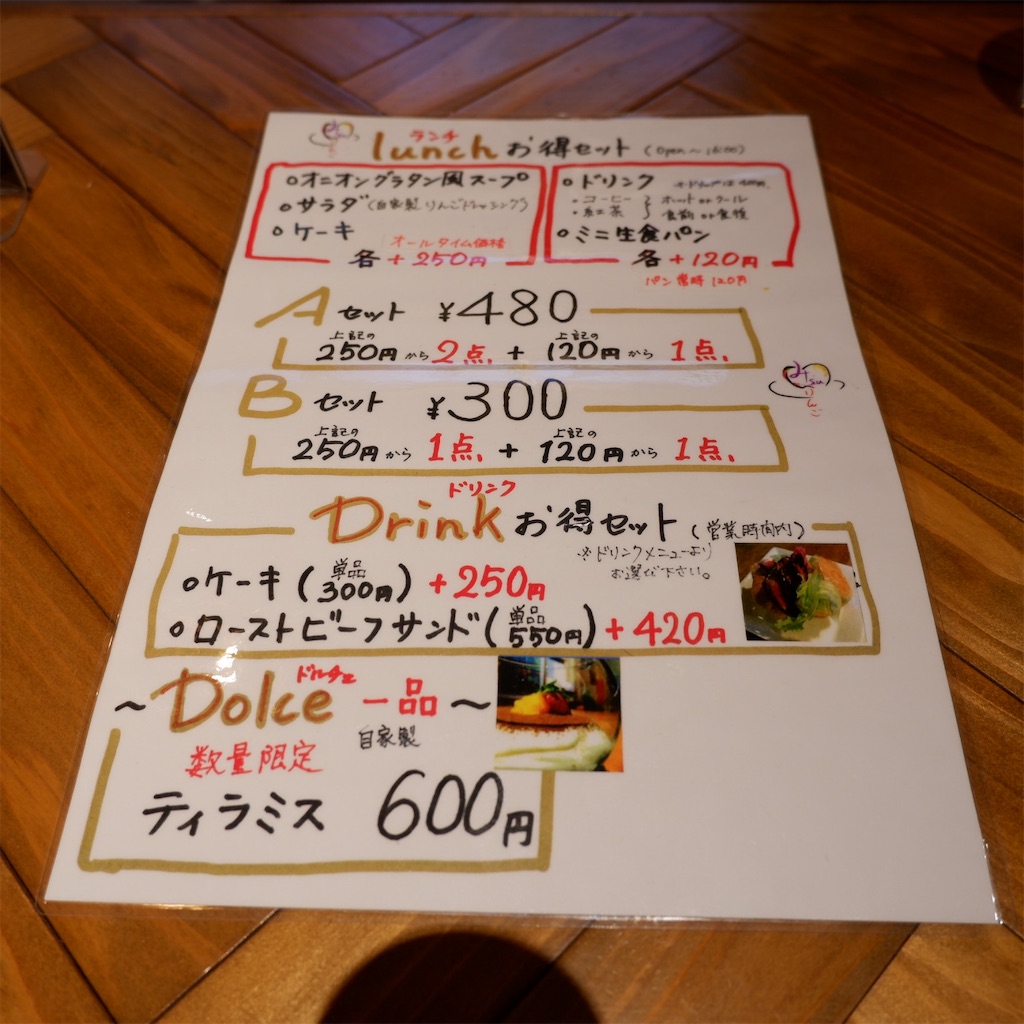 ランチ
lunch お得セット (open～16:00)
○オニオングラタン風スープ
○サラダ(自家製 りんごドレッシング)
○ケーキ
オールタイム価格
各+250円
○ドリンク
・コーヒー ホット or クール
・紅茶 食前 or 食後
○ミニ生食パン
各+120円
パン常時120円
Aセット ¥480
上記の250円から2点 + 上記の120円から1点
Bセット ¥300
上記の250円から1点 + 上記の120円から1点
ドリンク
Drinkお得セット(営業時間内)
※ドリンクメニューより
お選び下さい。
○ケーキ(単品300円)+250円
○ローストビーフサンド(単品550円)+420円
ドルチェ
～Dolce一品～
自家製
数量限定
ティラミス 600円